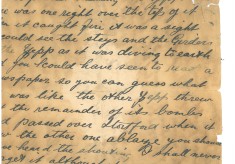 was one right over the top of it
it caught fire, it was a sight
could see the steps and the girders
the Zepp as it was diving to earth
you could have seen to read a
newspaper so you can guess what
was like the other Zepp threw
the remainder of its bombs
passed over Stratford when it
the other one ablaze you should
heard the shouting I shall never
forget it